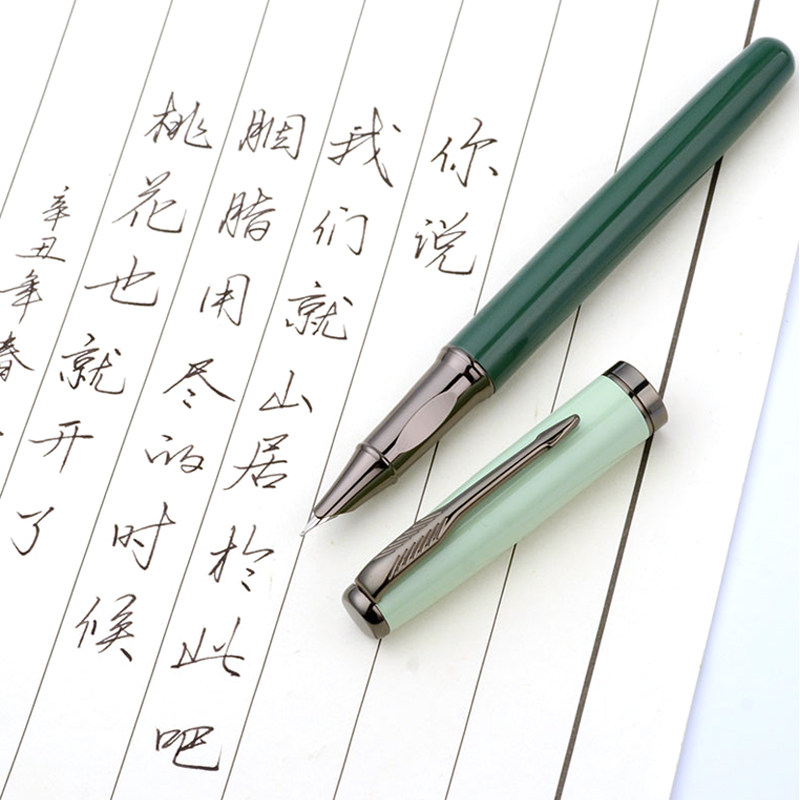 你说
我们就山居於此吧
胭脂用尽的时候
桃花也就开了
辛丑年春